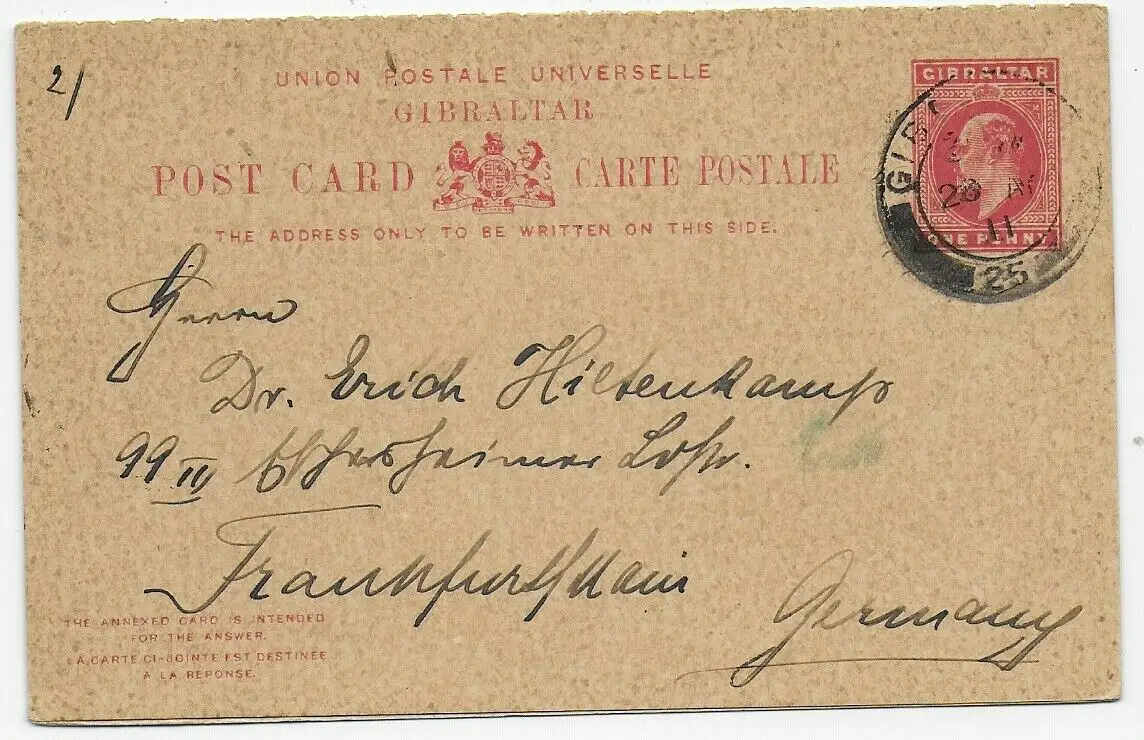 2/
UNION POSTALE UNIVERSELLE
GIBRALTAR
POST CARD CARTE POSTALE
THE ADDRESS ONLY TO BE WRITTEN ON THIS SIDE.
GIBRALTAR
ONE PENNY
GIB
11
25
Herrn
Dr. Erich Hiltenkamp
99 III
Frankfurt/Main
Germany
THE ANNEXED CARD IS INTENDED
FOR THE ANSWER.
LA CARTE CI-JOINTE EST DESTINÉE
A LA RÉPONSE.